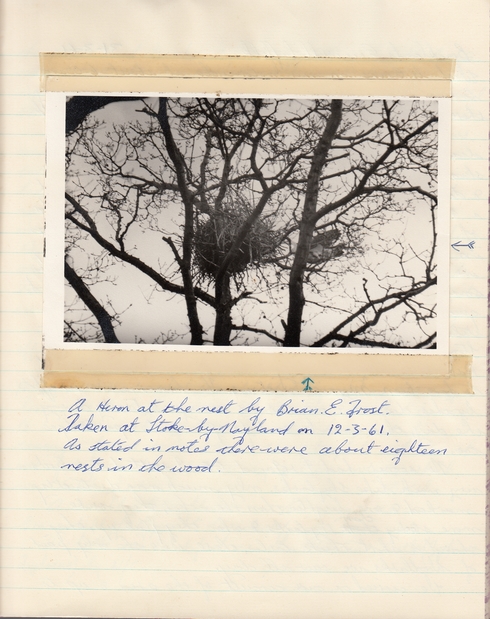 A Heron at the nest by Brian. E. Frost.
Taken at Stoke-by-Nayland on 12-3-61.
As stated in notes there were about eighteen
nests in the wood.